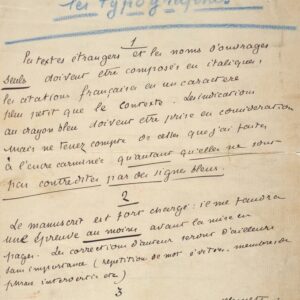 les typographes
1
les textes étrangers et les noms d'ouvrages
seuls doivent être composés en italiques,
les citations françaises en un caractère
plus petit que le contexte. Les indications
au crayon bleu doivent être prise en considération
Mais ne tenez compte de celles que j'ai faites
à l'encre carminée qu'autant qu'elles ne sont
pas contredites par des signe bleus.
2
Le manuscrit est fort chargé : il me faudra
une épreuve au moins avant la mise en
pages. Les corrections d'auteur seront d'ailleurs
sans importance (répétition de mot à éviter, membres de
phrase intervertis etc)
3